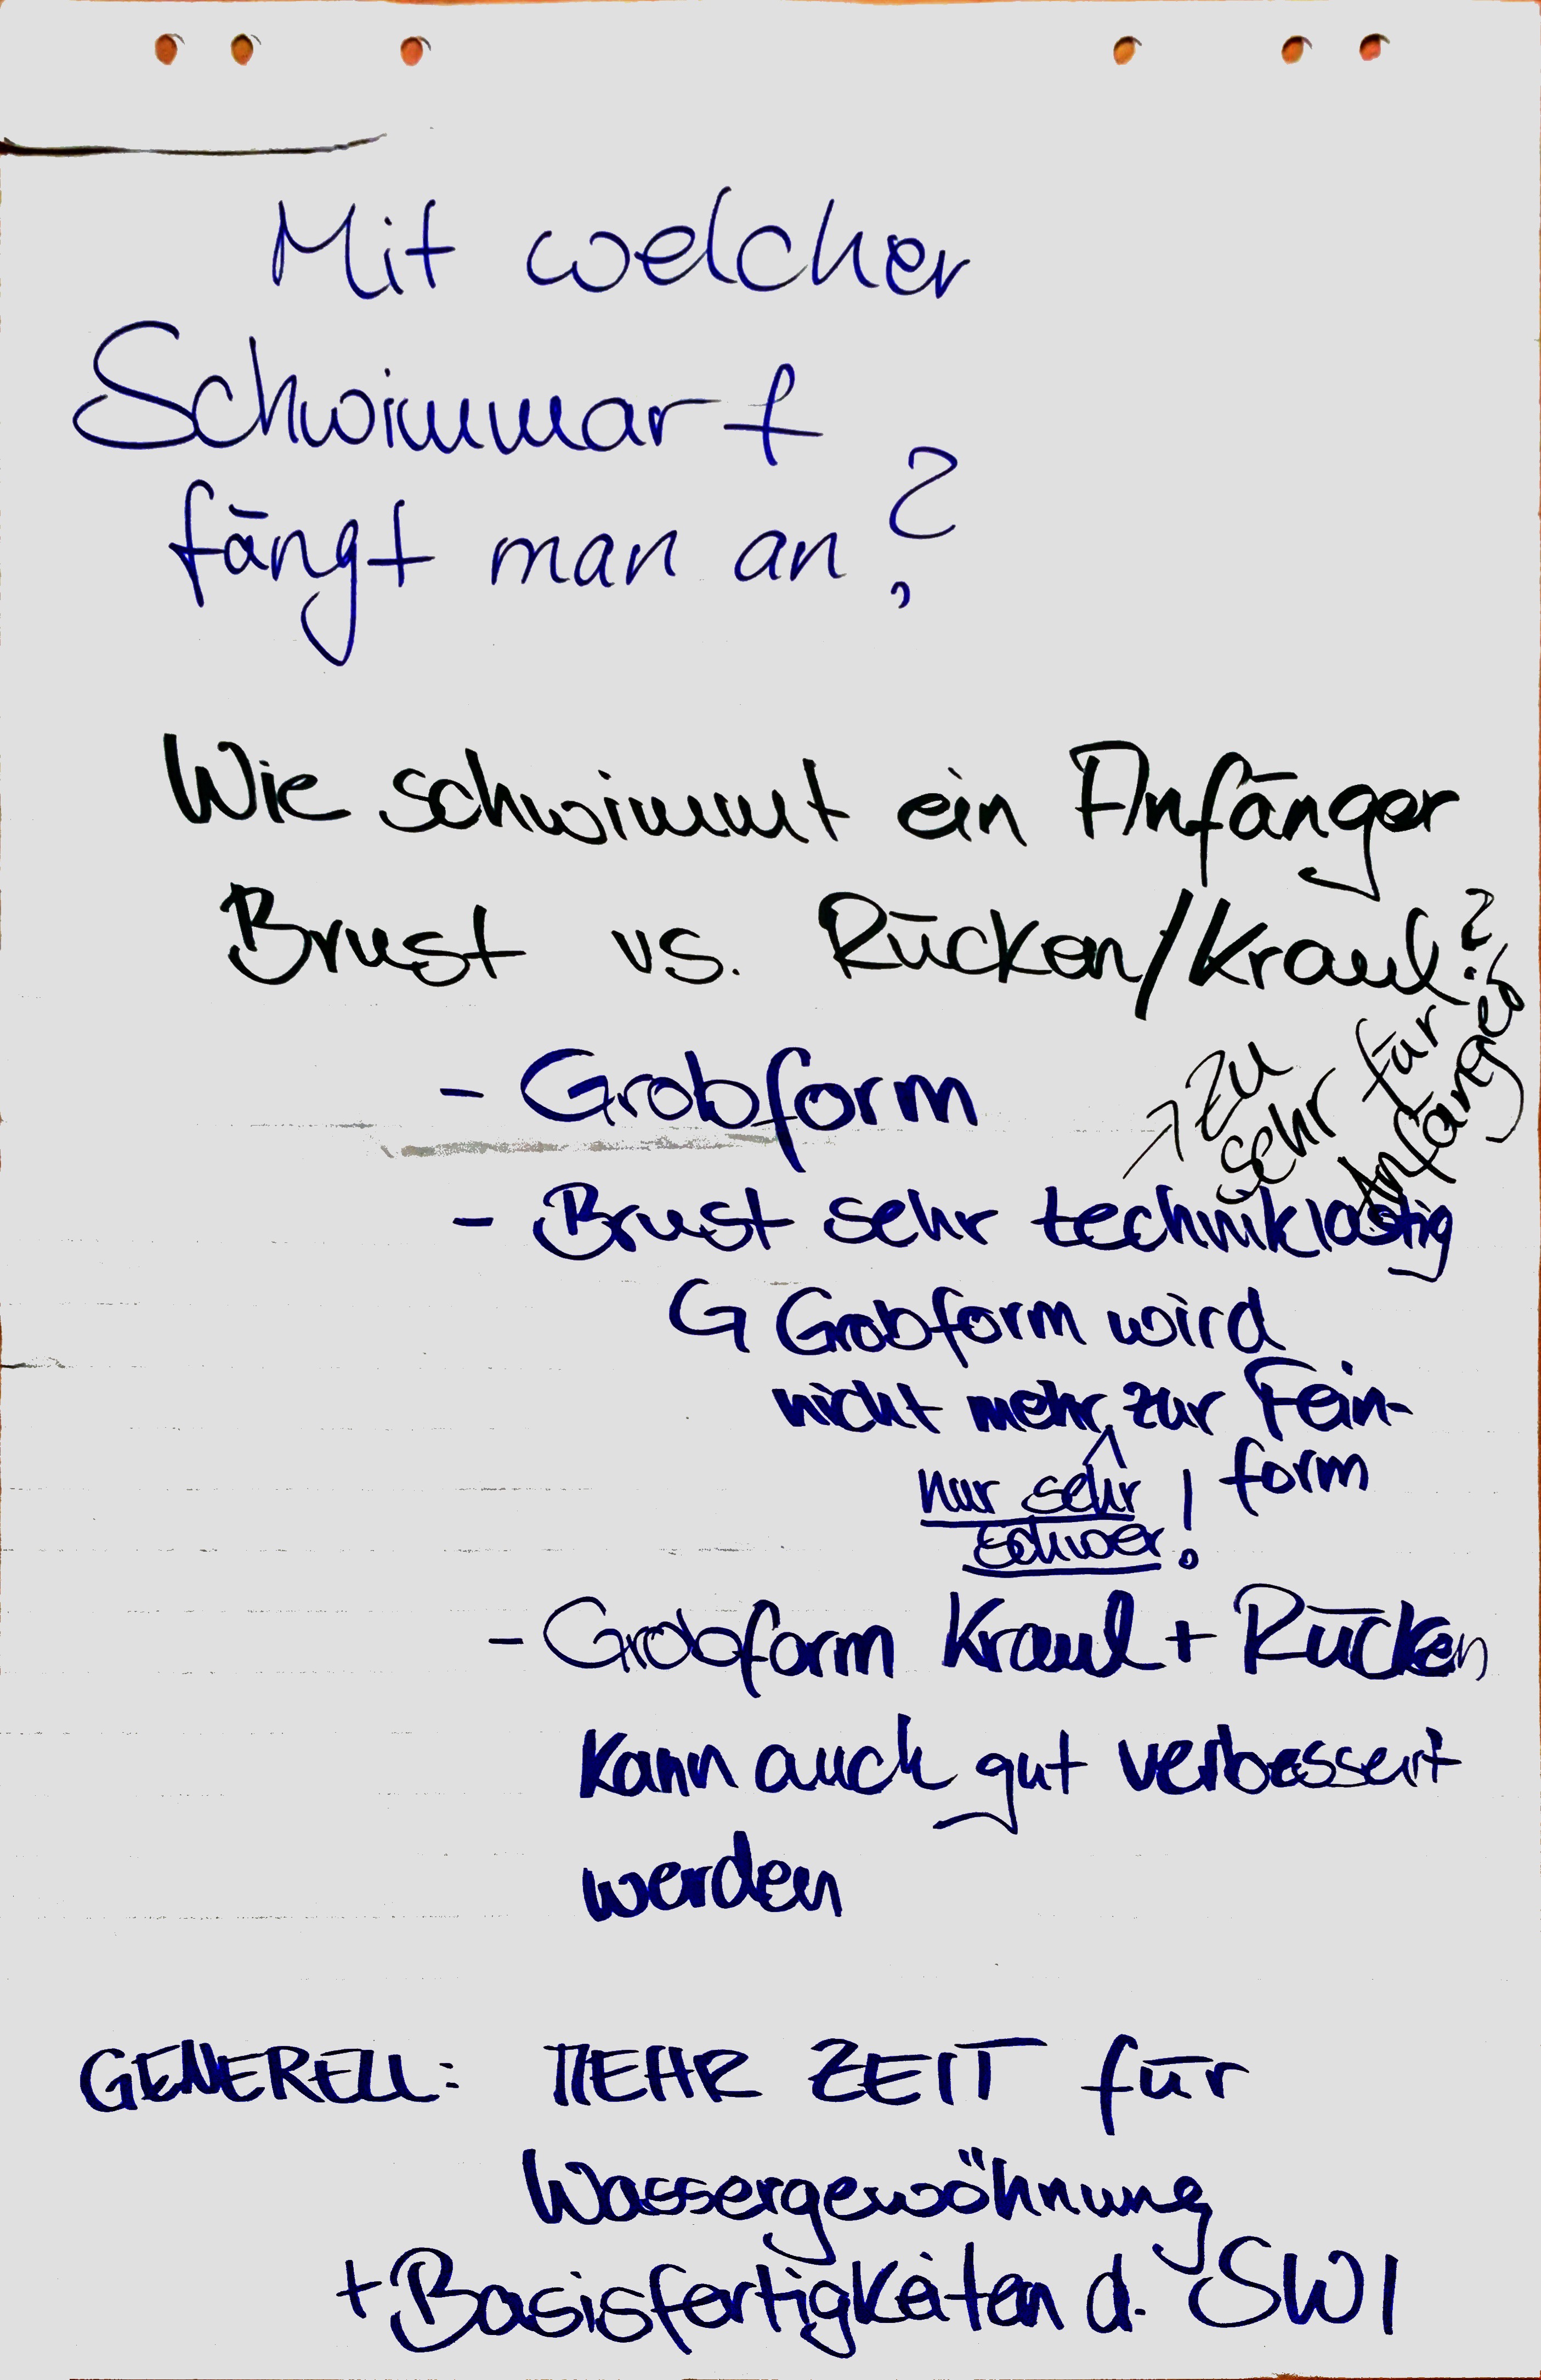 Mit welcher
Schwimmart
fängt man an?
Wie schwimmt ein Anfänger
Brust vs. Rücken/Kraul?
- Grobform
→ zu
sehr für
Anfänger
- Brust sehr techniklastig
↳ Grobform wird
nicht mehr zur Fein-
form
nur sehr
schwer!
- Grobform Kraul + Rücken
kann auch gut verbessert
werden
GENERELL: MEHR ZEIT für
Wassergewöhnung
+ Basisfertigkeiten d. SWI